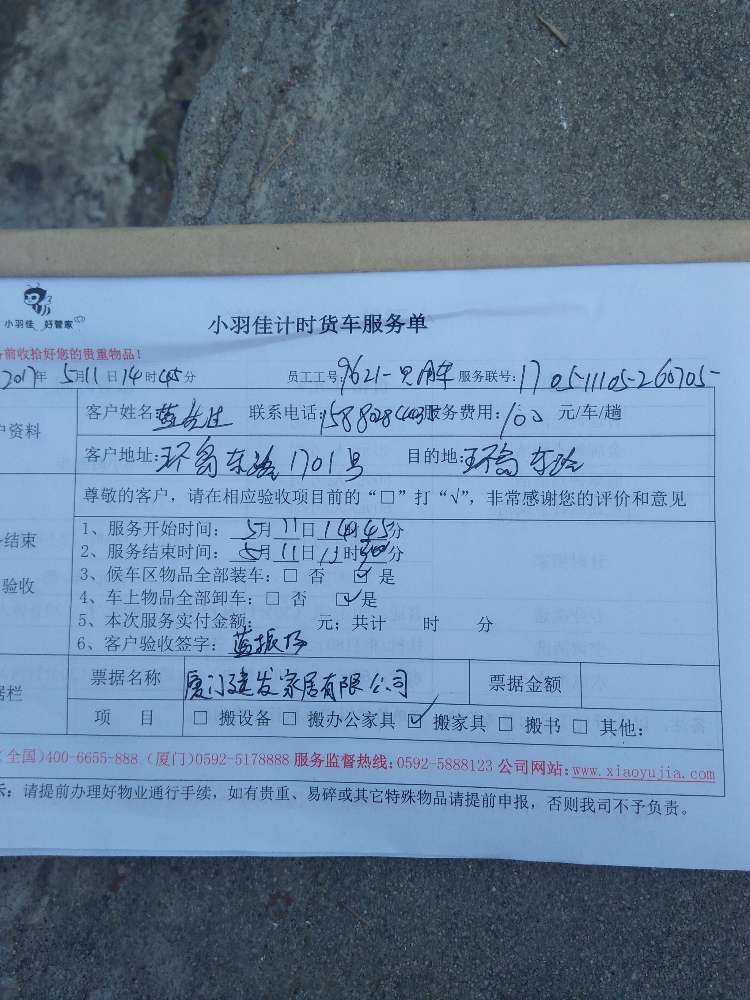 小羽佳 好管家
小羽佳计时货车服务单
前收拾好您的贵重物品!
2017年 5月11日14时45分 员工工号: 9621- 服务联号: 1705-11105-260705-
户资料 客户姓名: 蓝先生 联系电话: 服务费用: 100 元/车/趟
客户地址: 环岛东路1701号 目的地: 环岛东路
尊敬的客户，请在相应验收项目前的“□”打“√”，非常感谢您的评价和意见
结束
验收
1、服务开始时间: 5月11日14时45分
2、服务结束时间: 5月11日 时 分
3、候车区物品全部装车: □ 否 ☑ 是
4、车上物品全部卸车: □ 否 ☑ 是
5、本次服务实付金额: 元; 共计 时 分
6、客户验收签字: 蓝振
据栏 票据名称 厦门建发家居有限公司 票据金额
项 目 □ 搬设备 □ 搬办公家具 ☑ 搬家具 □ 搬书 □ 其他:
(全国)400-6655-888 (厦门)0592-5178888 服务监督热线:0592-5888123 公司网站:www.xiaoyujia.com
示: 请提前办理好物业通行手续，如有贵重、易碎或其它特殊物品请提前申报，否则我司不予负责。